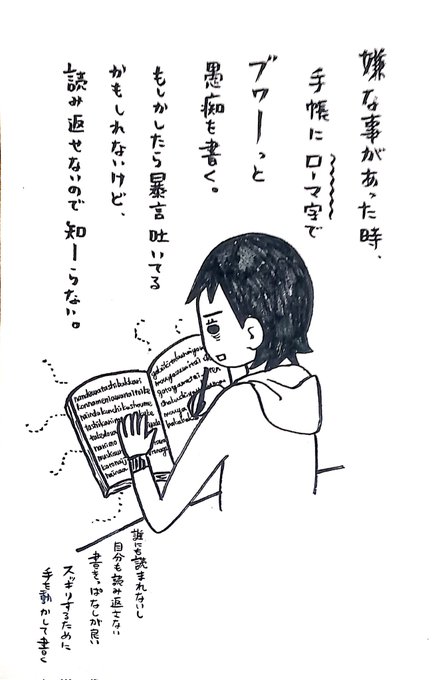 嫌な事があった時、
手帳にローマ字で
ブワーっと
愚痴を書く。
もしかしたら暴言吐いてる
かもしれないけど、
読み返せないので知ーらない。
nandawatashibakkari
konnameniawanaitoike
誰にも読まれないし
自分も読み返さない
書きっぱなしが良い
スッキリするために
手を動かして書く